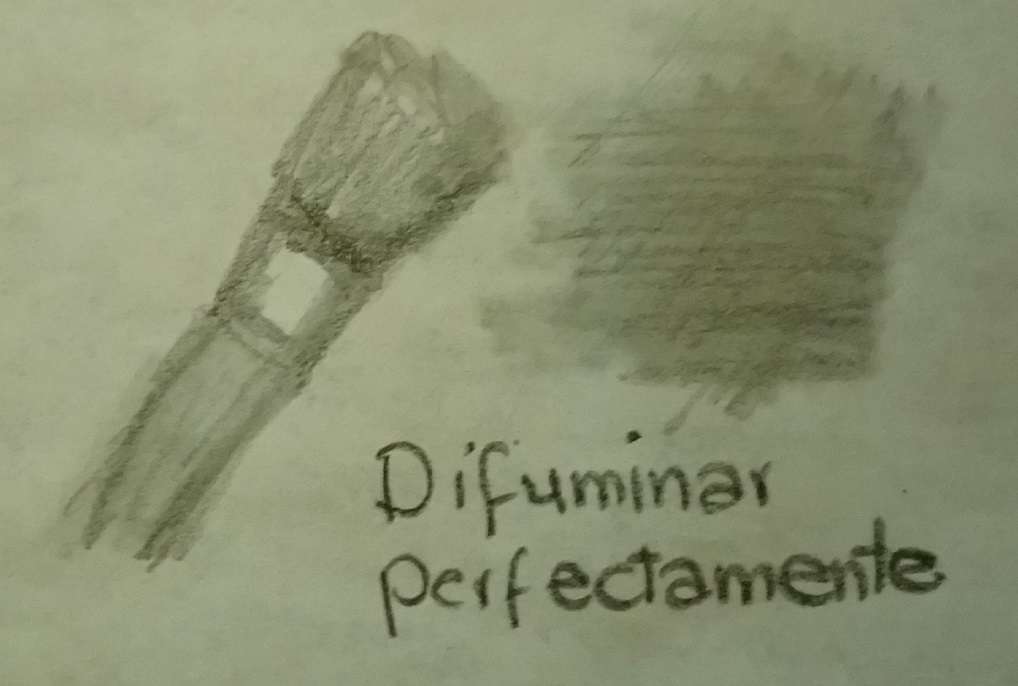 Difuminar
perfectamente